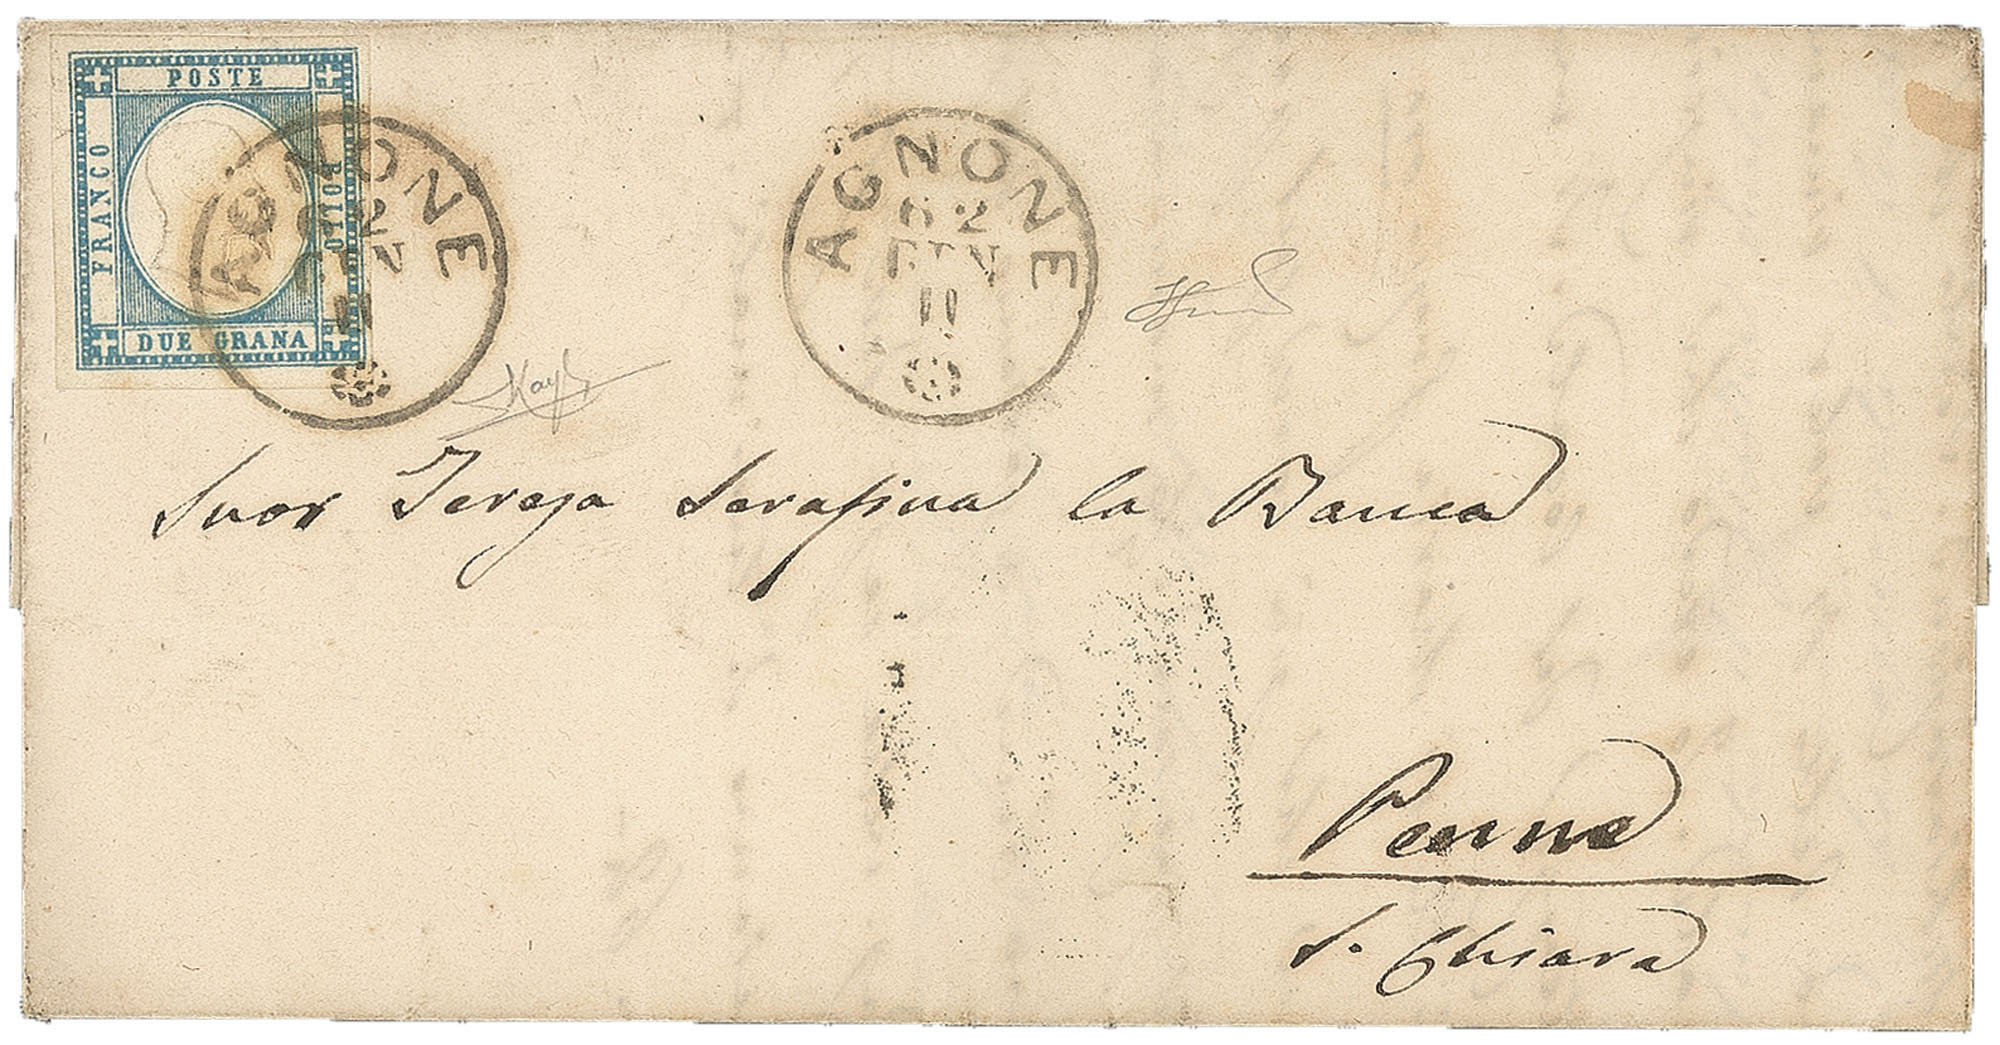 POSTE
FRANCO
BOLLO
DUE GRANA
AGNONE
62
11
AGNONE
62
GIN
11
Suor Teresa Serafina la Banca
Penne
S. Chiara